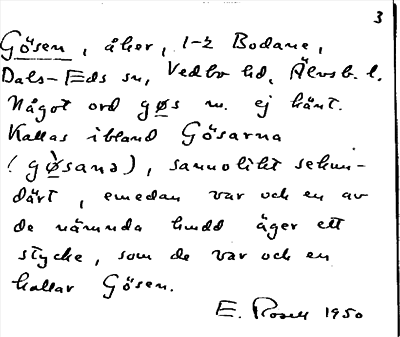 3
Gösen, åker, 1-2 Bodane,
Dals-Eds sn, Vedbo hd, Älvsb. l.
Något ord gøs m. ej känt.
Kallas ibland Gösarna
(gø̀sana), sannolikt sekun-
därt, emedan var och en av
de nämnda hmdd äger ett
stycke, som de var och en
kallar Gösen.
E. Rosell 1950